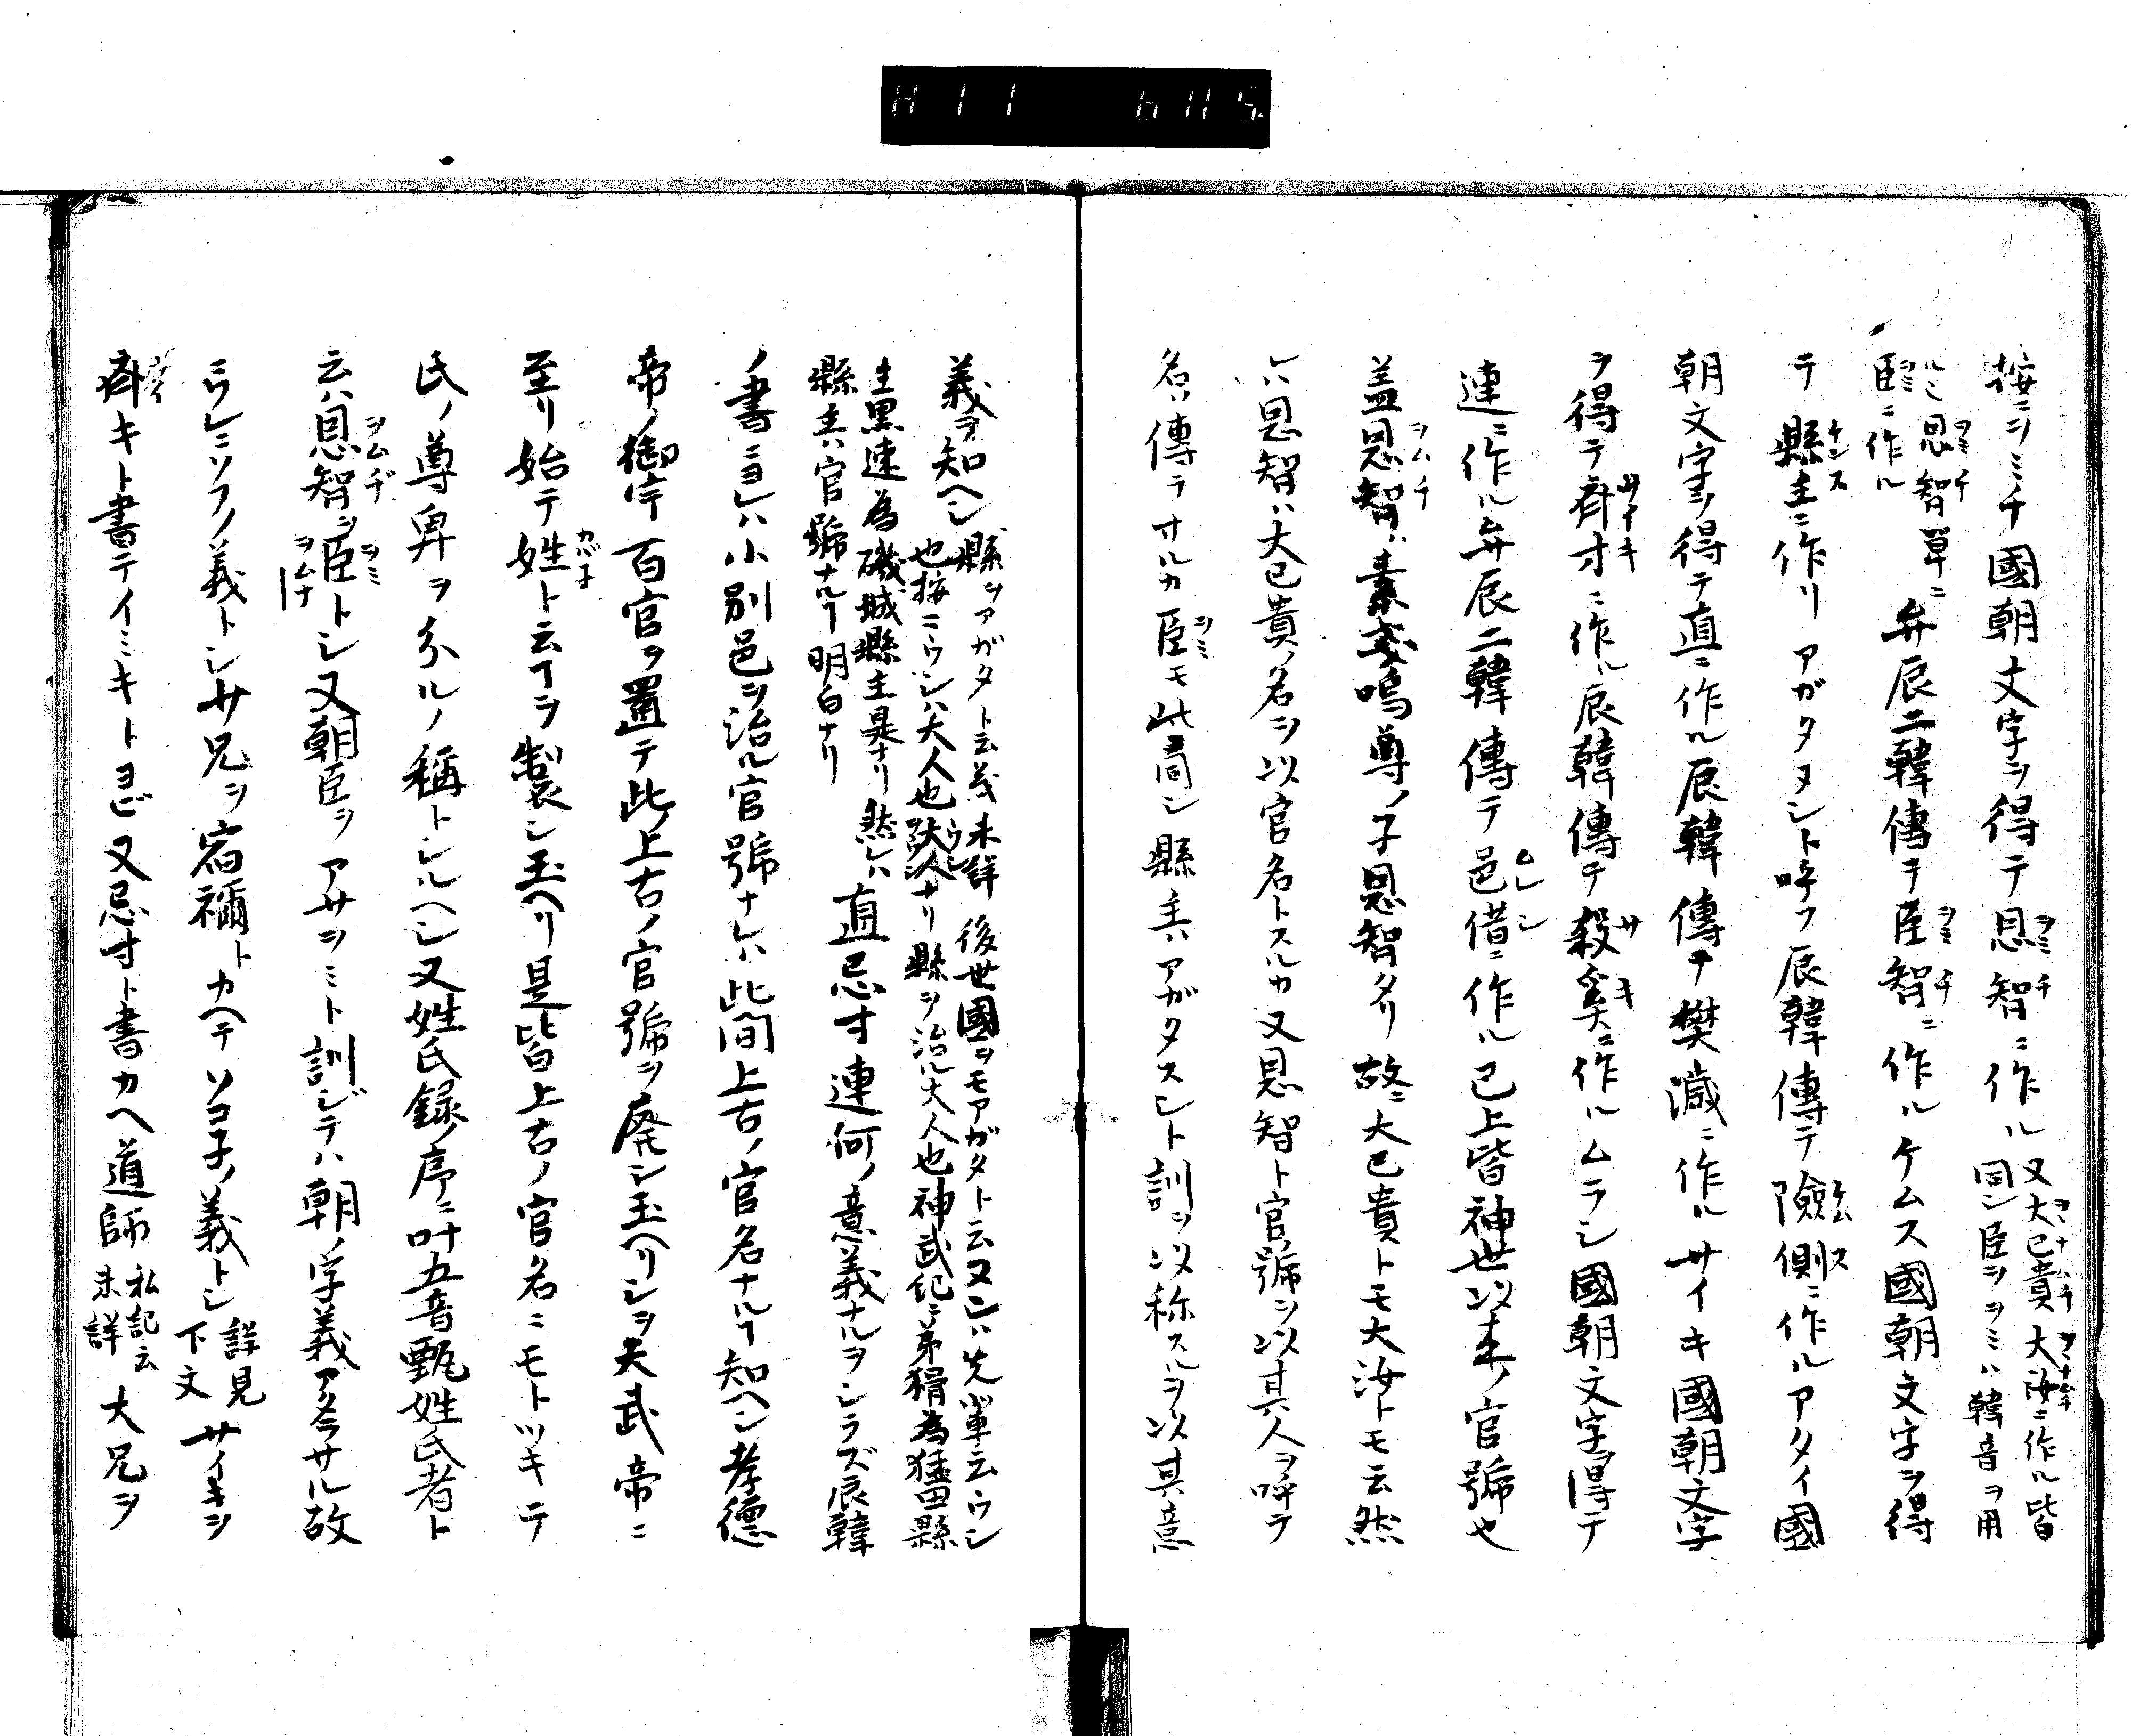 H11 6115
按ニヲミチ國朝文字ヲ得テ恩智ニ作ル又大己貴大汝ニ作ル皆同シ臣ヲヲミハ韓音ヲ用
ルミ恩智單ニ臣ニ作ル弁辰二韓傳キ臣智ニ作ルケムス國朝文字ヲ得
テ縣主ニ作リアガタヌシト呼フ辰韓傳テ險側ニ作ルアタイ國
朝文字ヲ得テ直ニ作ル辰韓傳テ樊濊ニ作ルサイキ國朝文字
ヲ得テ斎寸ニ作ル辰韓傳テ殺奚ニ作ルムラシ國朝文字得テ
連ニ作ル弁辰二韓傳テ邑借ニ作ル已上皆神世以来ノ官號也
盖恩智ハ素戔嗚尊ノ子恩智タリ故ニ大己貴トモ大汝トモ云然
レハ恩智ハ大己貴ノ名ヲ以官名トスルカ又恩智ト官號ヲ以其人ヲ呼テ
名ハ傳ラサルカ臣モ此同シ縣主ハアガタスシト訓ヲ以称スルヲ以其意
義ヲ知ヘシ縣ヲアガタト云義未詳後世國ヲモアガタト云又シハ先輩云ウシ
也按ニウシハ大人也大人ナリ縣ヲ治ル大人也神武紀ニ弟猾為猛田縣
主黒速為磯城縣主是ナリ然レハ
縣主ハ官號ナルヿ明白ナリ直忌寸連何ノ意義ナルヲシラズ辰韓
ノ書ニヨレハ小別邑ヲ治ル官號ナレハ此間上古ノ官名ナルヿ知ヘシ孝德
帝ノ御宇百官ヲ置テ此上古ノ官號ヲ廃シ玉ヘリシヲ天武帝ニ
至リ始テ姓ト云ヿヲ製シ玉ヘリ是皆上古ノ官名ニモトツキテ
氏ノ尊卑ヲ分ルノ稱トシルヘシ又姓氏録ノ序ニ叶五音甄姓氏者ト
云ハ恩智ヲ臣トシ又朝臣ヲアサヲミト訓ジテハ朝ノ字義アタラサル故
ニウレニソフノ義トシサ兄ヲ宿禰トカヘテソコ子ノ義トシ詳見下文サイキヲ
斎キト書テイミキトヨビ又忌寸ト書カヘ道師私記云未詳大兄ヲ